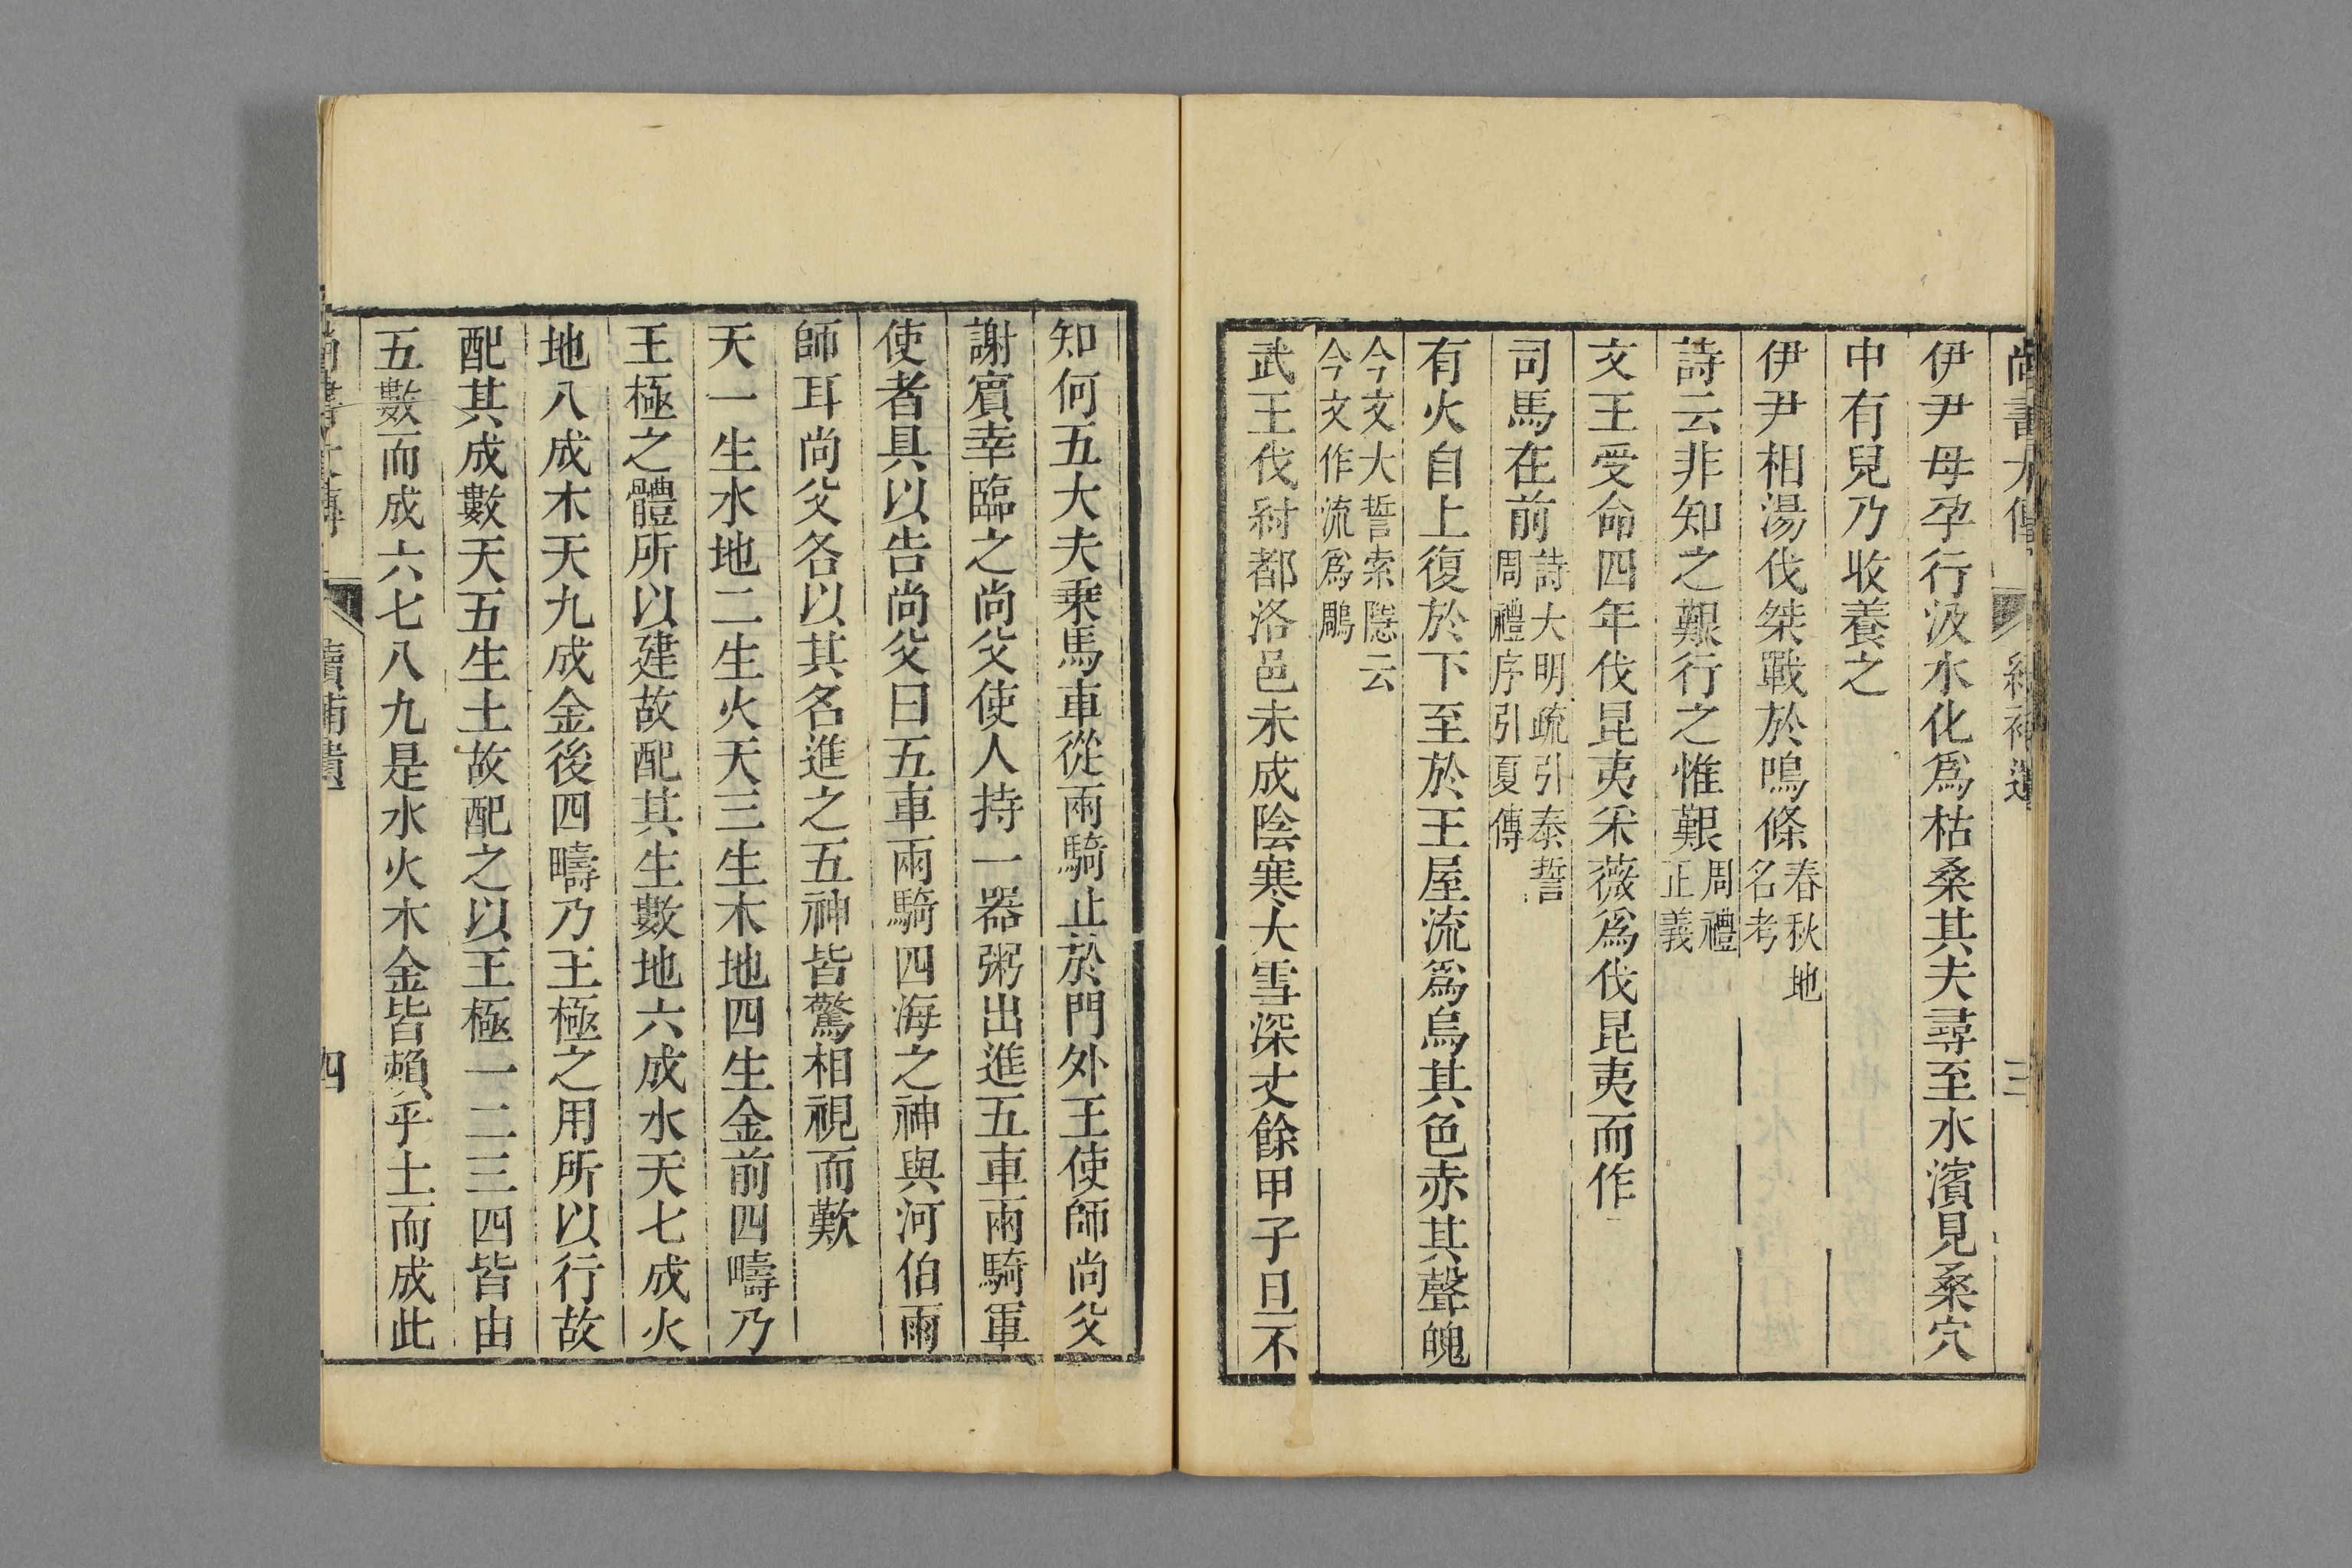 尚書大傳 續補遺 三
伊尹母孕行汲水化爲枯桑其夫尋至水濱見桑穴
中有兒乃收養之
伊尹相湯伐桀戰於鳴條春秋地名考
詩云非知之艱行之惟艱周禮正義
文王受命四年伐昆夷采薇爲伐昆夷而作
司馬在前詩大明疏引泰誓周禮序引夏傳
有火自上復於下至於王屋流爲烏其色赤其聲魄
今文大誓索隱云今文作流爲鵰
武王伐紂都洛邑未成陰寒大雪深丈餘甲子旦不
知何五大夫乗馬車從兩騎止於門外王使師尚父
謝賓幸臨之尚父使人持一器粥出進五車兩騎軍
使者具以告尚父曰五車兩騎四海之神與河伯雨
師耳尚父各以其名進之五神皆驚相視而歎
天一生水地二生火天三生木地四生金前四疇乃
王極之體所以建故配其生數地六成水天七成火
地八成木天九成金後四疇乃王極之用所以行故
配其成數天五生土故配之以王極一二三四皆由
五數而成六七八九是水火木金皆賴乎土而成此
尚書大傳 續補遺 四